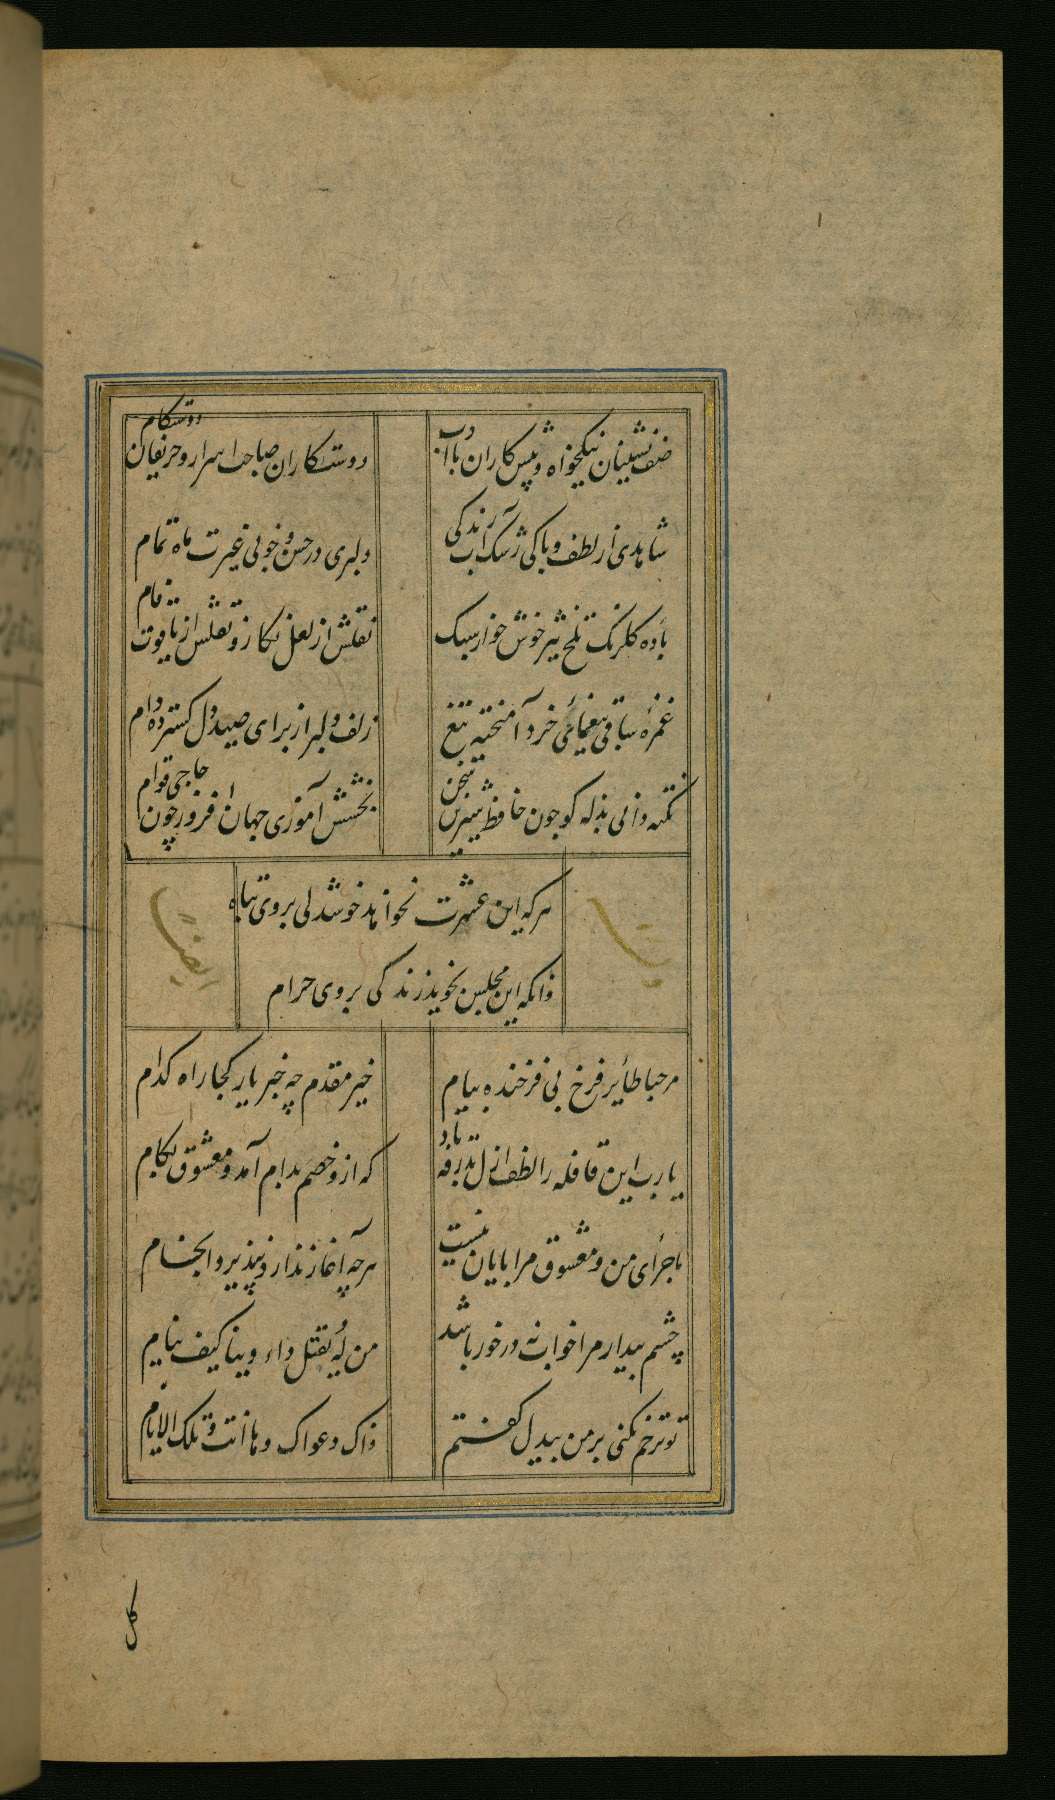 صف نشینان نیکخواه و پیش کاران با ادب
دوستکاران صاحب اسرار و حریفان دوستکام
شاهدی از لطف و پاکی رشک آب زندکی
دلبری در حسن و خوبی غیرت ماه تمام
باده کلرنک تلخ تیز خوش خوار سبک
نقلش از لعل نکار و نقلش از یاقوت فام
غمزهٔ ساقی بیغمائی خرد آمیخته تیغ
زلف دلبر از برای صید دل کسترده دام
نکته دانی بذله کو چون حافظ شیرین سخن
بخشش آموزی جهان افروز چون حاجی قوام
هر که این عشرت نخواهد خوشدلی بروی تباه
وانکه این مجلس نجوید زندکی بروی حرام
مرحبا طأیر فرخ پی فرخنده پیام
خیر مقدم چه خبر یار کجا راه کدام
یا رب این قافله را لطف ازل بدرقه باد
که ازو خصم بدام آمد و معشوق بکام
ماجرأی من و معشوق مرا پایان نیست
هر چه آغاز ندارد نپذیرد انجام
چشم بیدار مرا خواب نه در خور باشد
من له یقتل داء دینا کیف ینام
تو ترحم نکنی بر من بیدل کفتم
ذاک دعوای وها انت و تلک الایام
کل